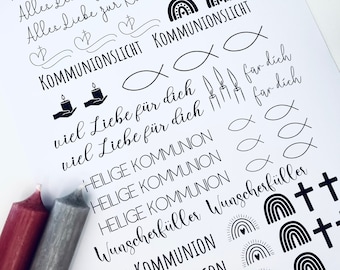 Alles Liebe
Alles Liebe zur K
KOMMUNIONSLICHT
KOMMUNIONSLICHT
viel Liebe für dich
viel Liebe für dich
für dich
für dich
HEILIGE KOMMUNION
HEILIGE KOMMUNION
HEILIGE KOMMUNION
Wunscherfüller Wunscherfüller
KOMMUNION